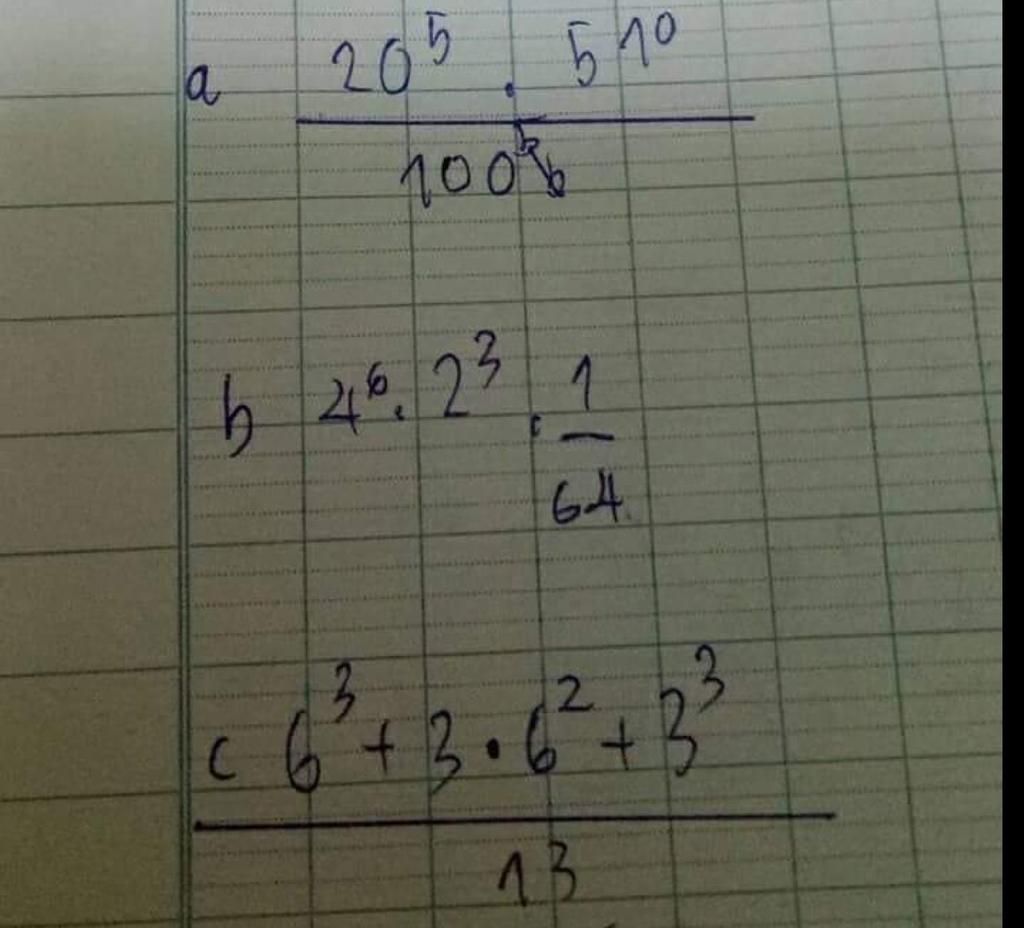 a 20⁵ . 5¹⁰
100⁵
b 4⁶ . 2³ . 1
64
c 6³ + 3 . 6² + 3³
13